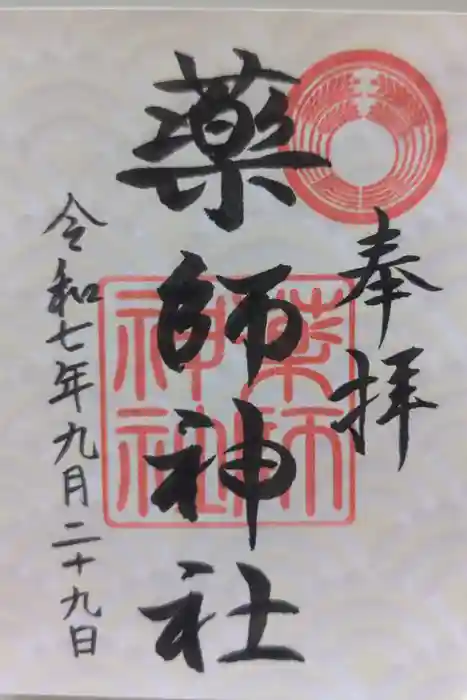 奉拝
薬師神社
令和七年九月二十九日
薬師
神社